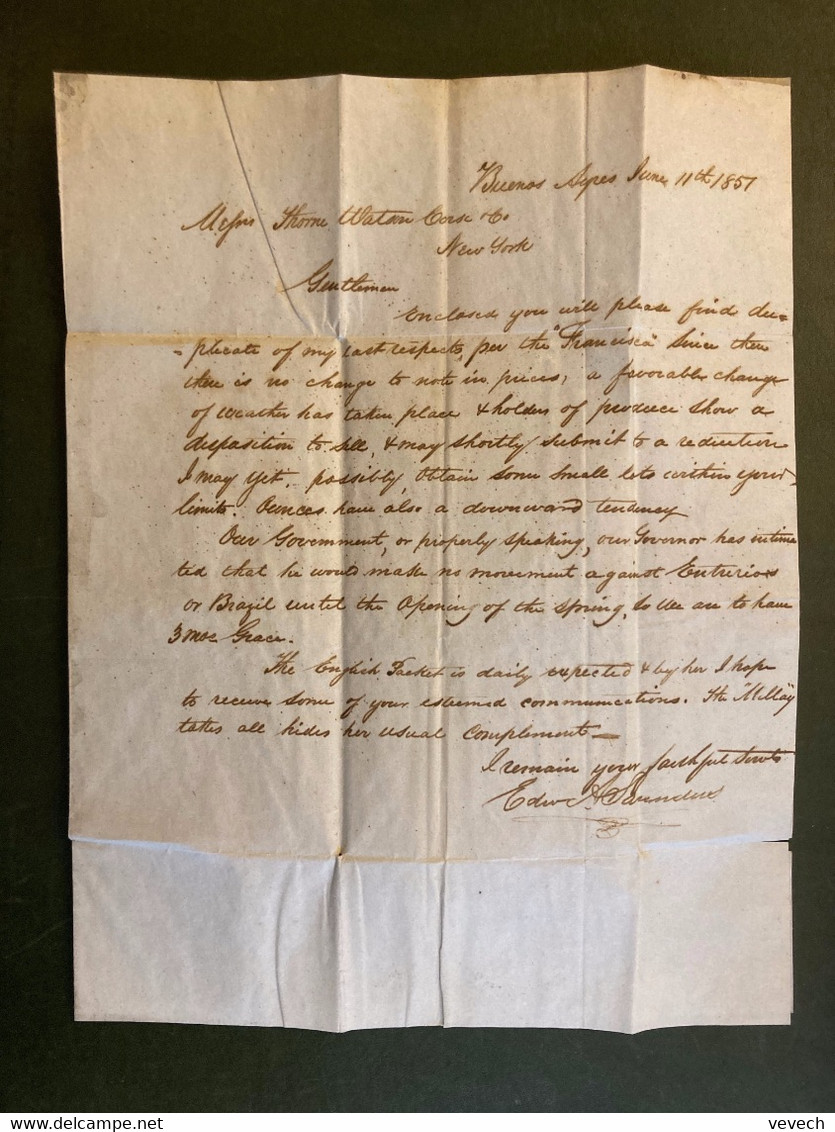 Buenos Ayres June 11th 1851
Messrs Thorne Watson Corse & Co
New York
Gentlemen
Enclosed you will please find du=
=plicate of my last respects, per the "Francisca" Since then
there is no change to note in prices, a favorable change
of weather has taken place & holders of produce show a
disposition to sell, & may shortly submit to a reduction
I may yet, possibly, obtain some small lots within your
limits. Ounces have also a downward tendency
Our Government, or properly speaking, our Governor has intima
ted that he would make no movement against Entrerios
or Brazil until the opening of the spring, so we are to have
3 mos Grace.
The English Packet is daily expected & by her I hope
to receive some of your esteemed communications. The
takes all hides her usual complement —
I remain your faithful Servt
Edw A. Saunders
DELCAMPE.NET
vevech